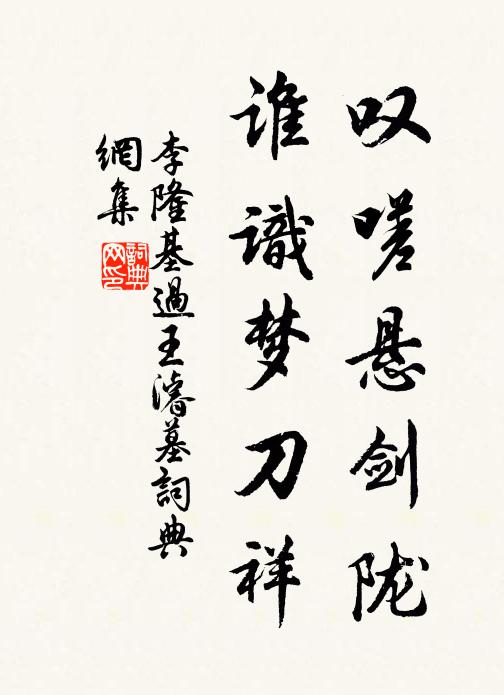 叹嗟悬剑陇
谁識梦刀祥
李隆基過王濬墓詞典
網集
詞典网印